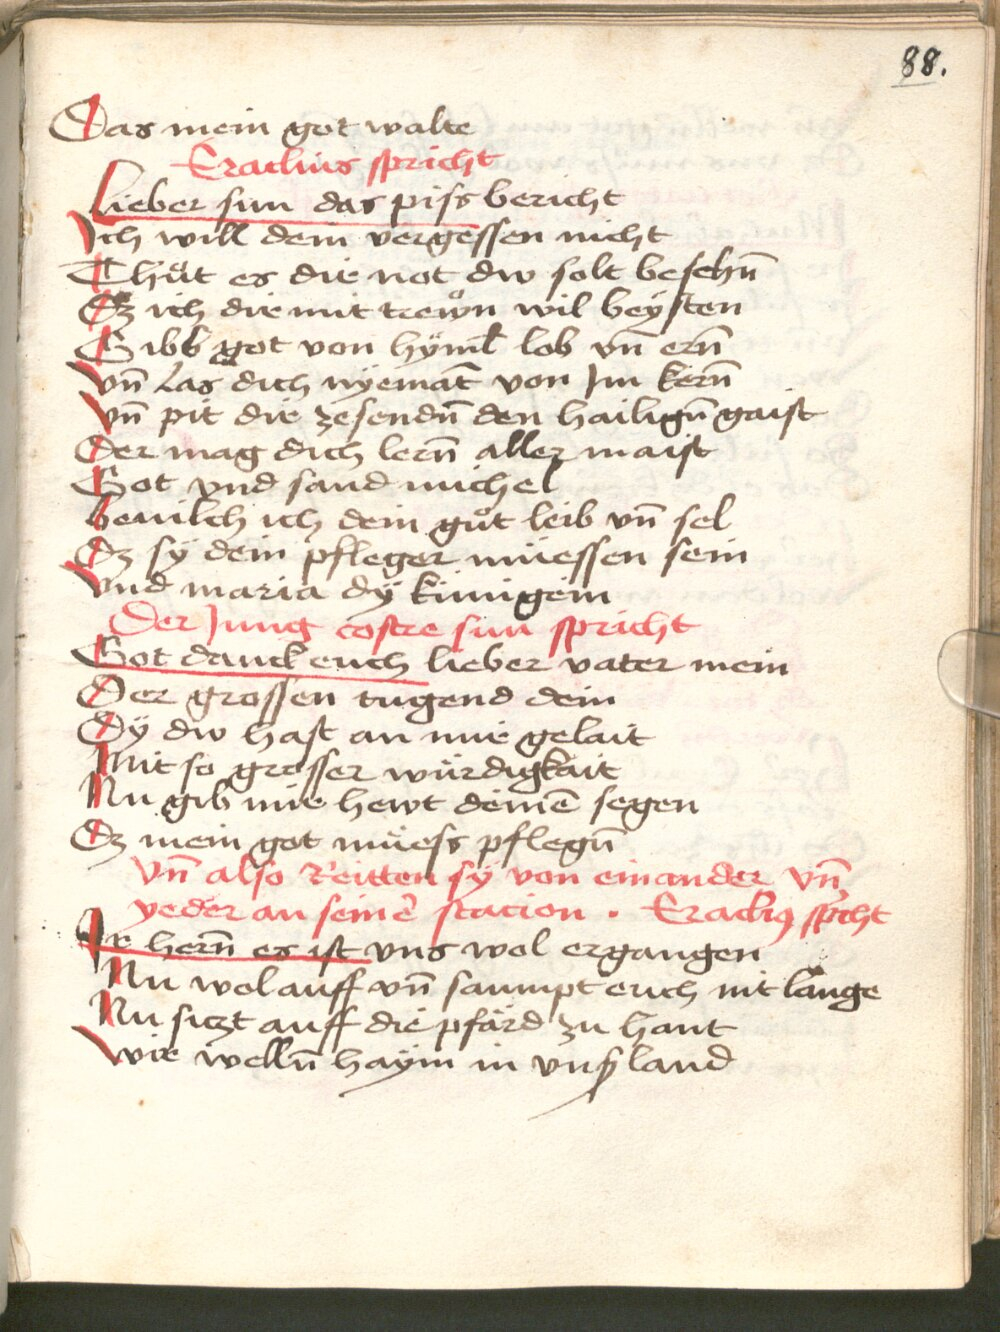 88.
Das mein got walte
Eraclius spricht
Lieber sun das piss bericht
Ich will dein vergessen nicht
Thuͦt es dir not dw solt besehn̄
Dz ich dir mit trewn̄ wil beysten
Gibb got von hÿml lob vn̄ ern̄
Vn̄ Las dich nyemāt von Im kern̄
Vn̄ pit dir zesendn̄ den hailign̄ gaist
Der mag dich lern̄ aller maist
Got vnd sand michel
beuilch ich dein guͦt leib vn̄ sel
Dz sÿ dein pfleger müessen sein
Vnd maria dÿ künigein
Der Jung costre sun spricht
Got danck euch lieber vater mein
Der grossen tugend dein
Dÿ dw hast an mir gelait
Mit so grosser würdigkait
Nu gib mir hewt deinē segen
Dz mein got müess pflegn̄
Vn̄ also Reitten sÿ von einander vn̄
yeder an seinē stacion . Eraclius spricht
Ir hern̄ es ist vns wol ergangen
Nu wol auff vn̄ saumpt euch nit lange
Nu siczt auff die pfärd zu hant
Wir welln̄ haÿm in vnser land